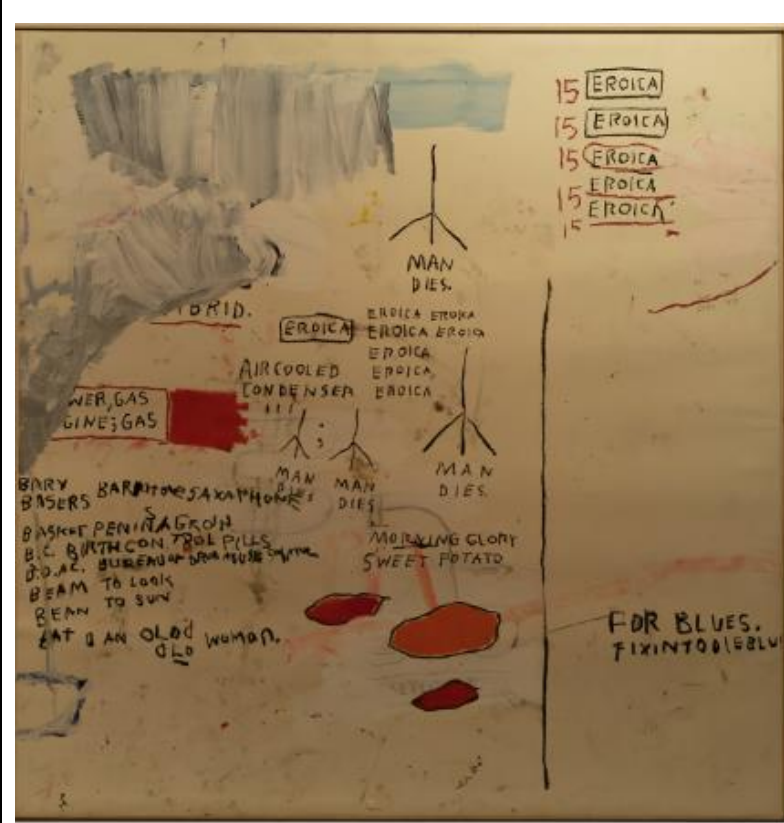 15 EROICA
15 EROICA
15 EROICA
EROICA
15 EROICA
15
MAN
DIES.
BRID.
EROICA
EROICA EROICA
EROICA EROICA
EROICA
EROICA
EROICA
AIRCOOLED
CONDENSER
WER, GAS
GINE; GAS
MAN
DIES
MAN
DIES
MAN
DIES
BARY BARRITONE SAXAPHONE
BASERS
BASKET PENINAGRON
B.C. BIRTHCONTROL PILLS
BUREAU OF DRUG ABUSE
BEAM TO LOOK
BEAN TO SUN
BAT AN OLD
OLD WOMAN.
MORNING GLORY
SWEET POTATO
FOR BLUES.
FIXINTODIEBLU